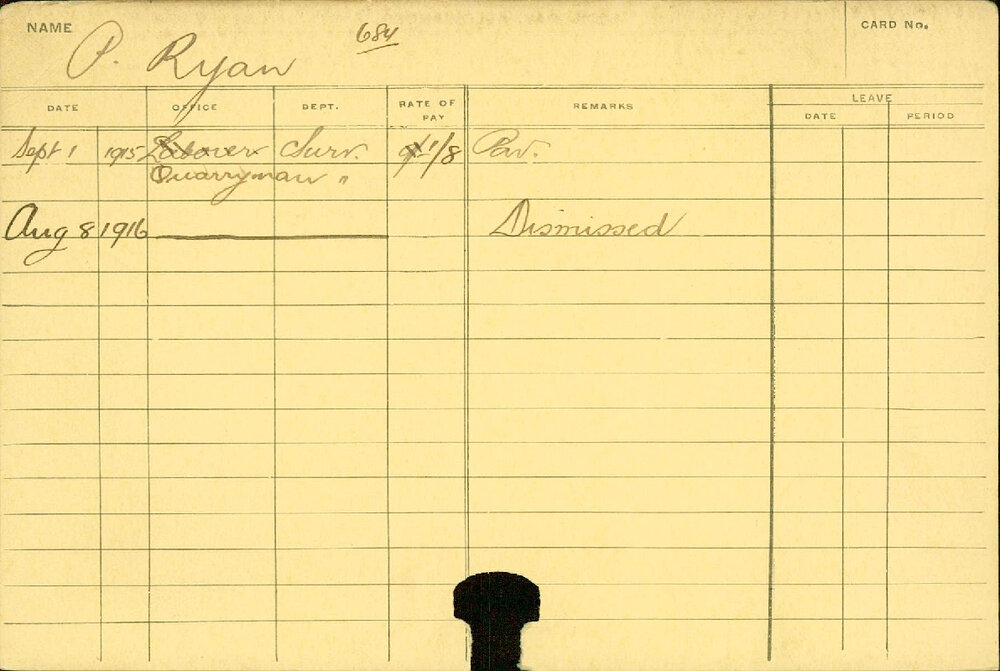 NAME P. Ryan 684 CARD No.
DATE OFFICE DEPT. RATE OF PAY REMARKS LEAVE
DATE PERIOD
Sept 1 1915 Laborer Surv. 1/8 Pav.
Quarryman "
Aug 8 1916 Dismissed